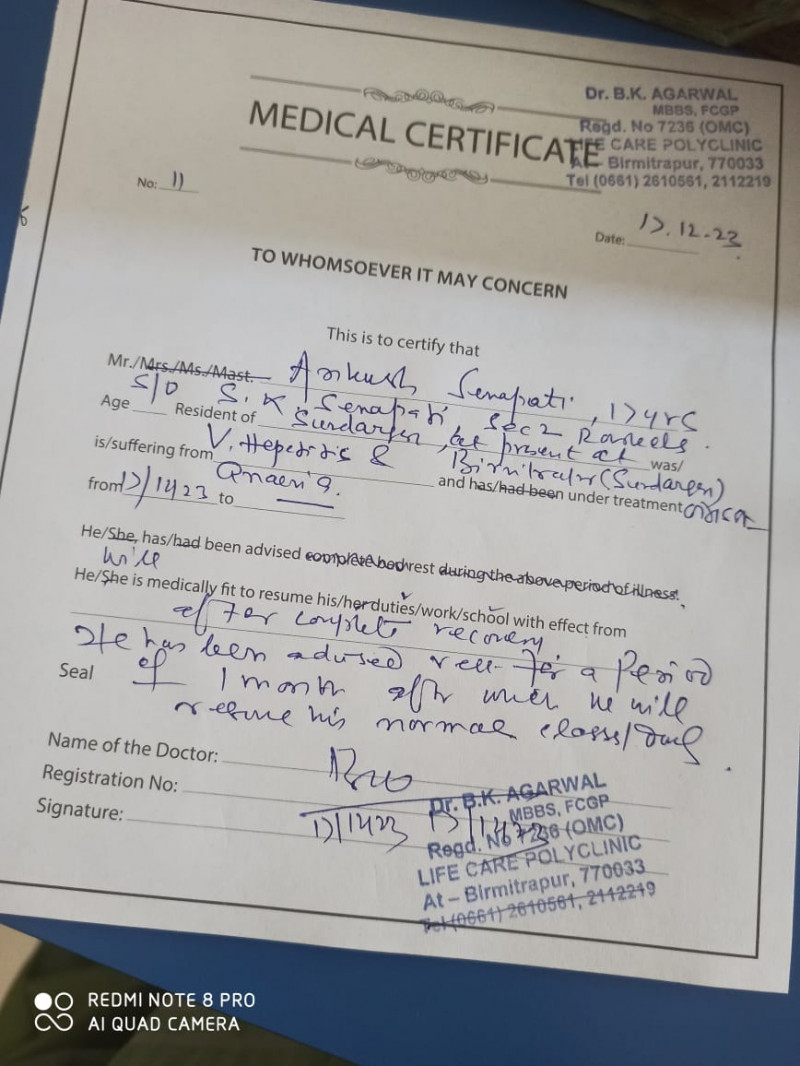 Dr. B.K. AGARWAL
MBBS, FCGP
Regd. No 7236 (OMC)
LIFE CARE POLYCLINIC
At – Birmitrapur, 770033
Tel (0661) 2610561, 2112219
MEDICAL CERTIFICATE
No: 11
Date: 17.12.23
TO WHOMSOEVER IT MAY CONCERN
This is to certify that
Mr./Mrs./Ms./Mast. Ankush Senapati, 17 yrs
S/O S. K. Senapati Sec 2
Age Resident of Sundargarh, at present at was/
is/suffering from V. Hepatitis & Birmitrapur (Sundargarh)
Anaemia. and has/had been under treatment
from to
He/She, has/had been advised complete bed rest during the above period of illness.
will
He/She is medically fit to resume his/her duties/work/school with effect from
after complete recovery
He has been advised rest for a Period
Seal of 1 month after which he will
resume his normal classs/
Name of the Doctor:
Registration No:
Signature:
Dr. B.K. AGARWAL
MBBS, FCGP
Regd. No 7236 (OMC)
LIFE CARE POLYCLINIC
At – Birmitrapur, 770033
Tel (0661) 2610561, 2112219
REDMI NOTE 8 PRO
AI QUAD CAMERA